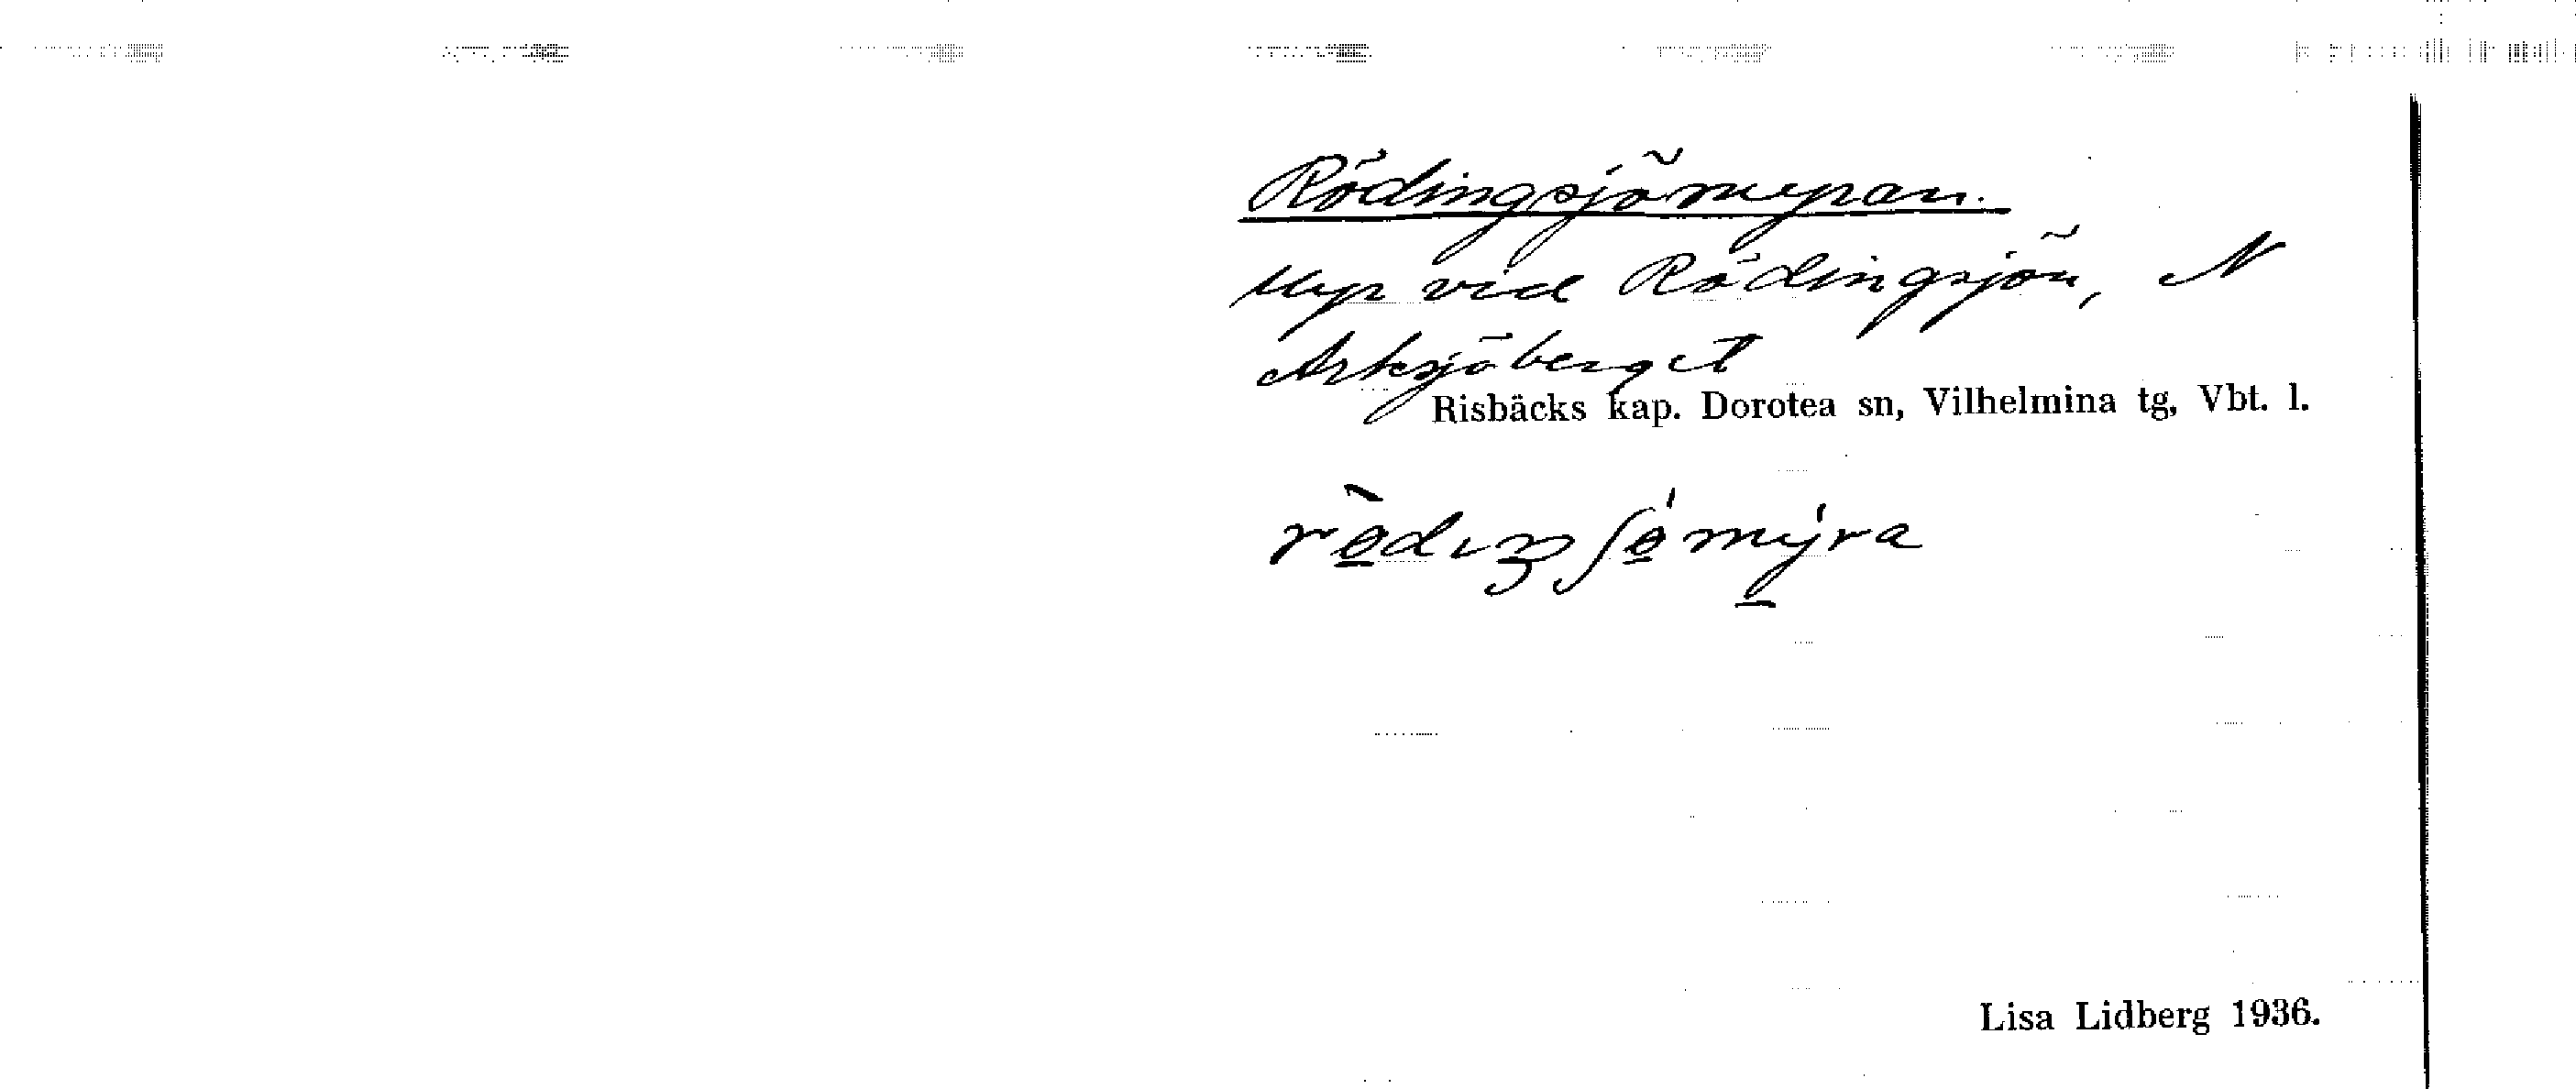 Rödingsjömyran.
Myr vid Rödingsjön, N
Arksjöberget
Risbäcks kap. Dorotea sn, Vilhelmina tg, Vbt. l.
rö̀dıŋʃö́mýra
Lisa Lidberg 1936.